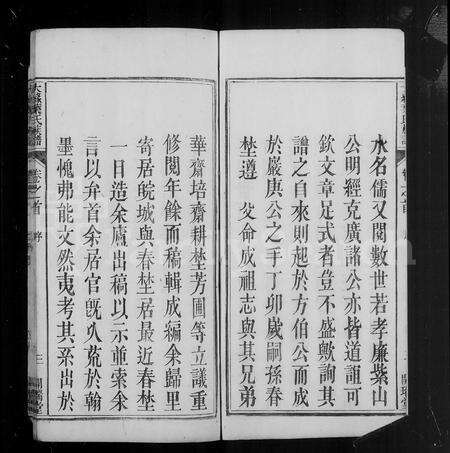 水名儒又閱數世若孝廉紫山
公明經克廣諸公亦皆道誼可
欽文章足式者豈不盛歟詢其
譜之自來則起於方伯公而成
於嚴庚公之手丁卯歲嗣孫春
埜遵 父命成祖志與其兄弟
華齋培齋耕埜芳圃等立議重
修閱年餘而稿輯成編余歸里
寄居皖城與春埜居最近春埜
一日造余廬出稿以示並索余
言以弁首余居官旣久荒於翰
墨愧弗能文然夷考其系出於
卷之首 序